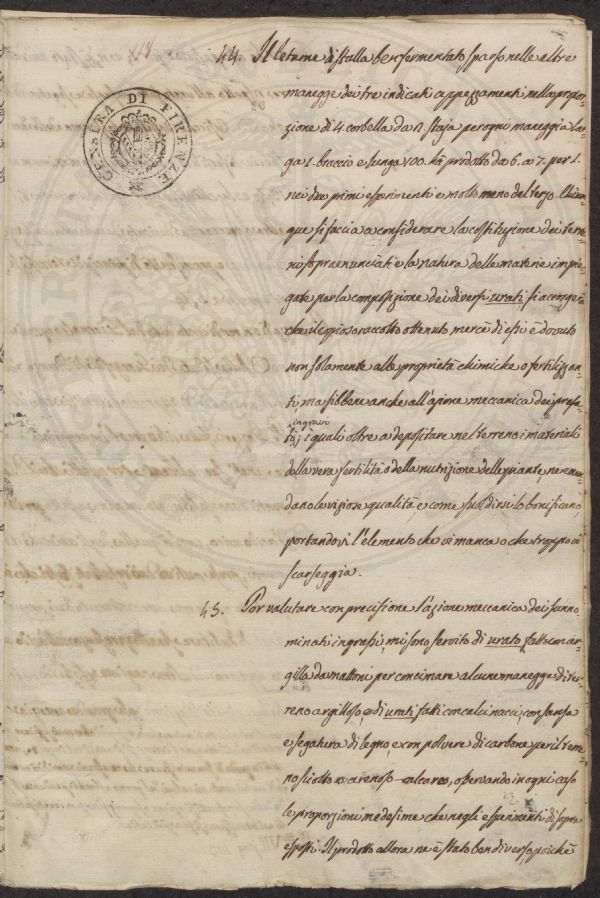 118
44. Il letame di stalla ben fermentato sparso nelle altre
manegge dei tre indicati appezzamenti nella propor=
zione di 4. corbella da 2. staja per ogni maneggia lar=
ga 1. braccio e lunga 100. hà prodotto da 6. a 7. per 1.
nei due primi esperimenti e molto meno del terzo. Chiun=
que si faccia a considerare la costituzione dei terre=
ni sopraenunciati e la natura delle materie impie=
gate per la composizione dei diversi urati si accorgerà
che il copioso raccolto ottenuto mercè di essi è dovuto
non solamente alle proprietà chimiche o fertilizzan=
ti, ma sibbene anche all'azione meccanica dei prefa=
ingrassi
ti; i quali oltre a depositare nel terreno i materiali
della vera fertilità o della nutrizione delle piante, ne emen=
dano le viziose qualità, e come suol dirsi lo bonificano
portandovi l'elemento che vi manca o che troppo vi
scarseggia.
45. Per valutare con precisione l'azione meccanica dei sunno=
minati ingrassi, mi sono servito di urato fatto con ar=
gilla da mattoni per concimare alcune manegge di ter=
reno argilloso, e di urati fatti con calcinacci, con sansa
e segatura di legno, e con polvere di carbone per il terre=
no sciolto o arenoso-calcareo, osservando in ogni caso
le proporzioni medesime che negli esperimenti di sopra
esposti. Il prodotto allora ne è stato ben diverso, poichè
CENSURA DI FIRENZE